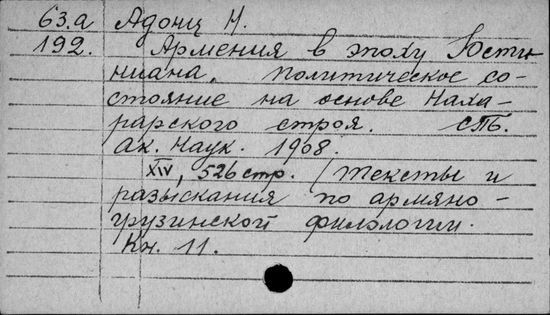 63.а Адонц Н.
192. Армения в эпоху Юсти-
ниана. Политическое со-
стояние на основе Наха-
рарского строя. СПБ.
Ак. Наук. 1908.
XIV, 526 стр. /Тексты и
разыскания по армяно-
грузинской филологии.
Кн. 11.